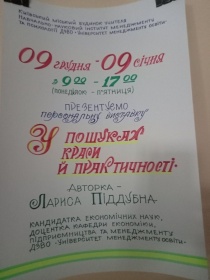 Київський міський будинок вчителя
Навчально-науковий інститут менеджменту
та психології ДЗВО «Університет менеджменту освіти»
09 грудня - 09 січня
з 9 00 - 17 00
(понеділок - п'ятниця)
презентуємо
персональну виставку
У пошуках
краси
й практичності.
Авторка -
Лариса Піддубна,
кандидатка економічних наук,
доцентка кафедри економіки,
підприємництва та менеджменту
ДЗВО «Університет менеджменту освіти»